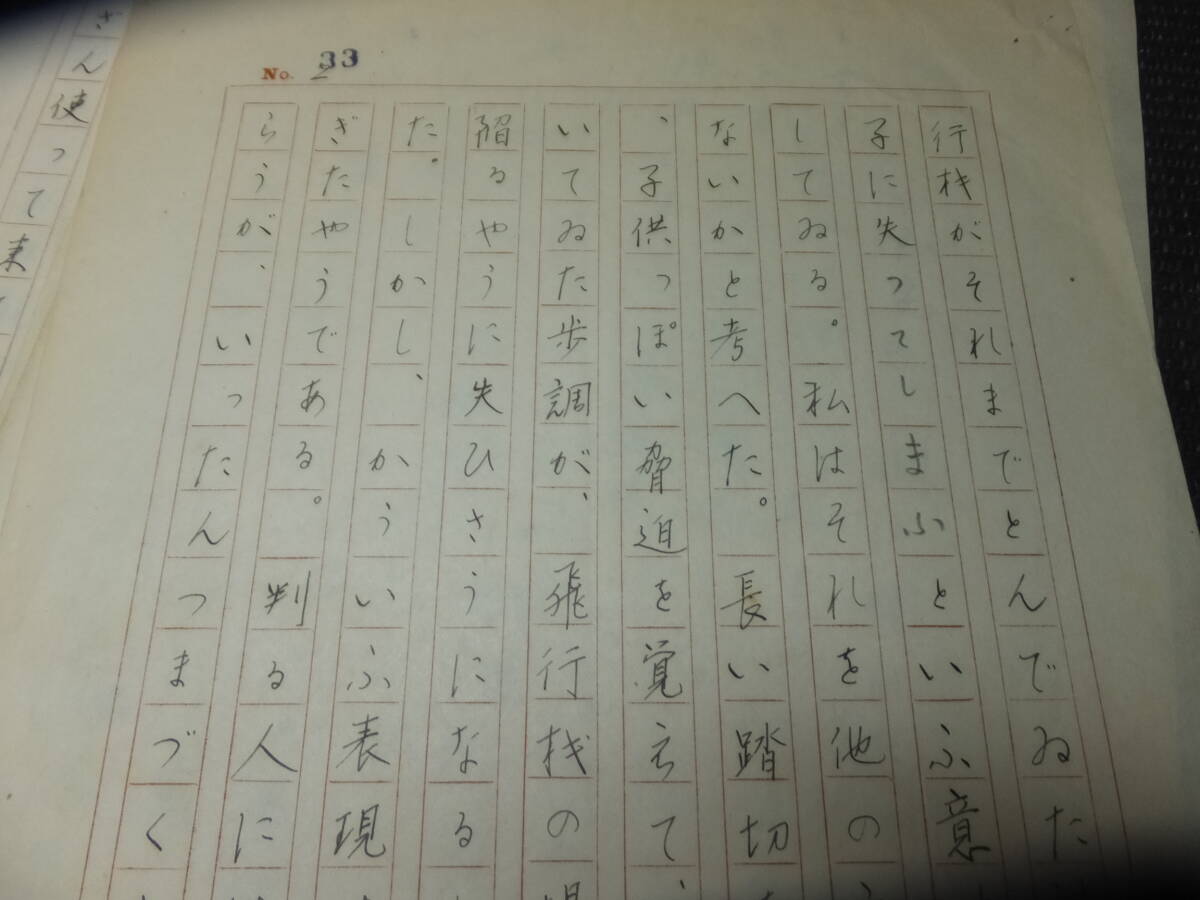 No. 33
行机がそれまでとんでゐた
子に失つてしまふといふ意
してゐる。私はそれを他の
ないかと考へた。長い踏切
、子供つぽい脅迫を覚えて、
いてゐた歩調が、飛行机の
解るやうに失ひさうになる
た。しかし、かういふ表現
ぎたやうである。判る人に
らうが、いつたんつまづく
ざん使つて来